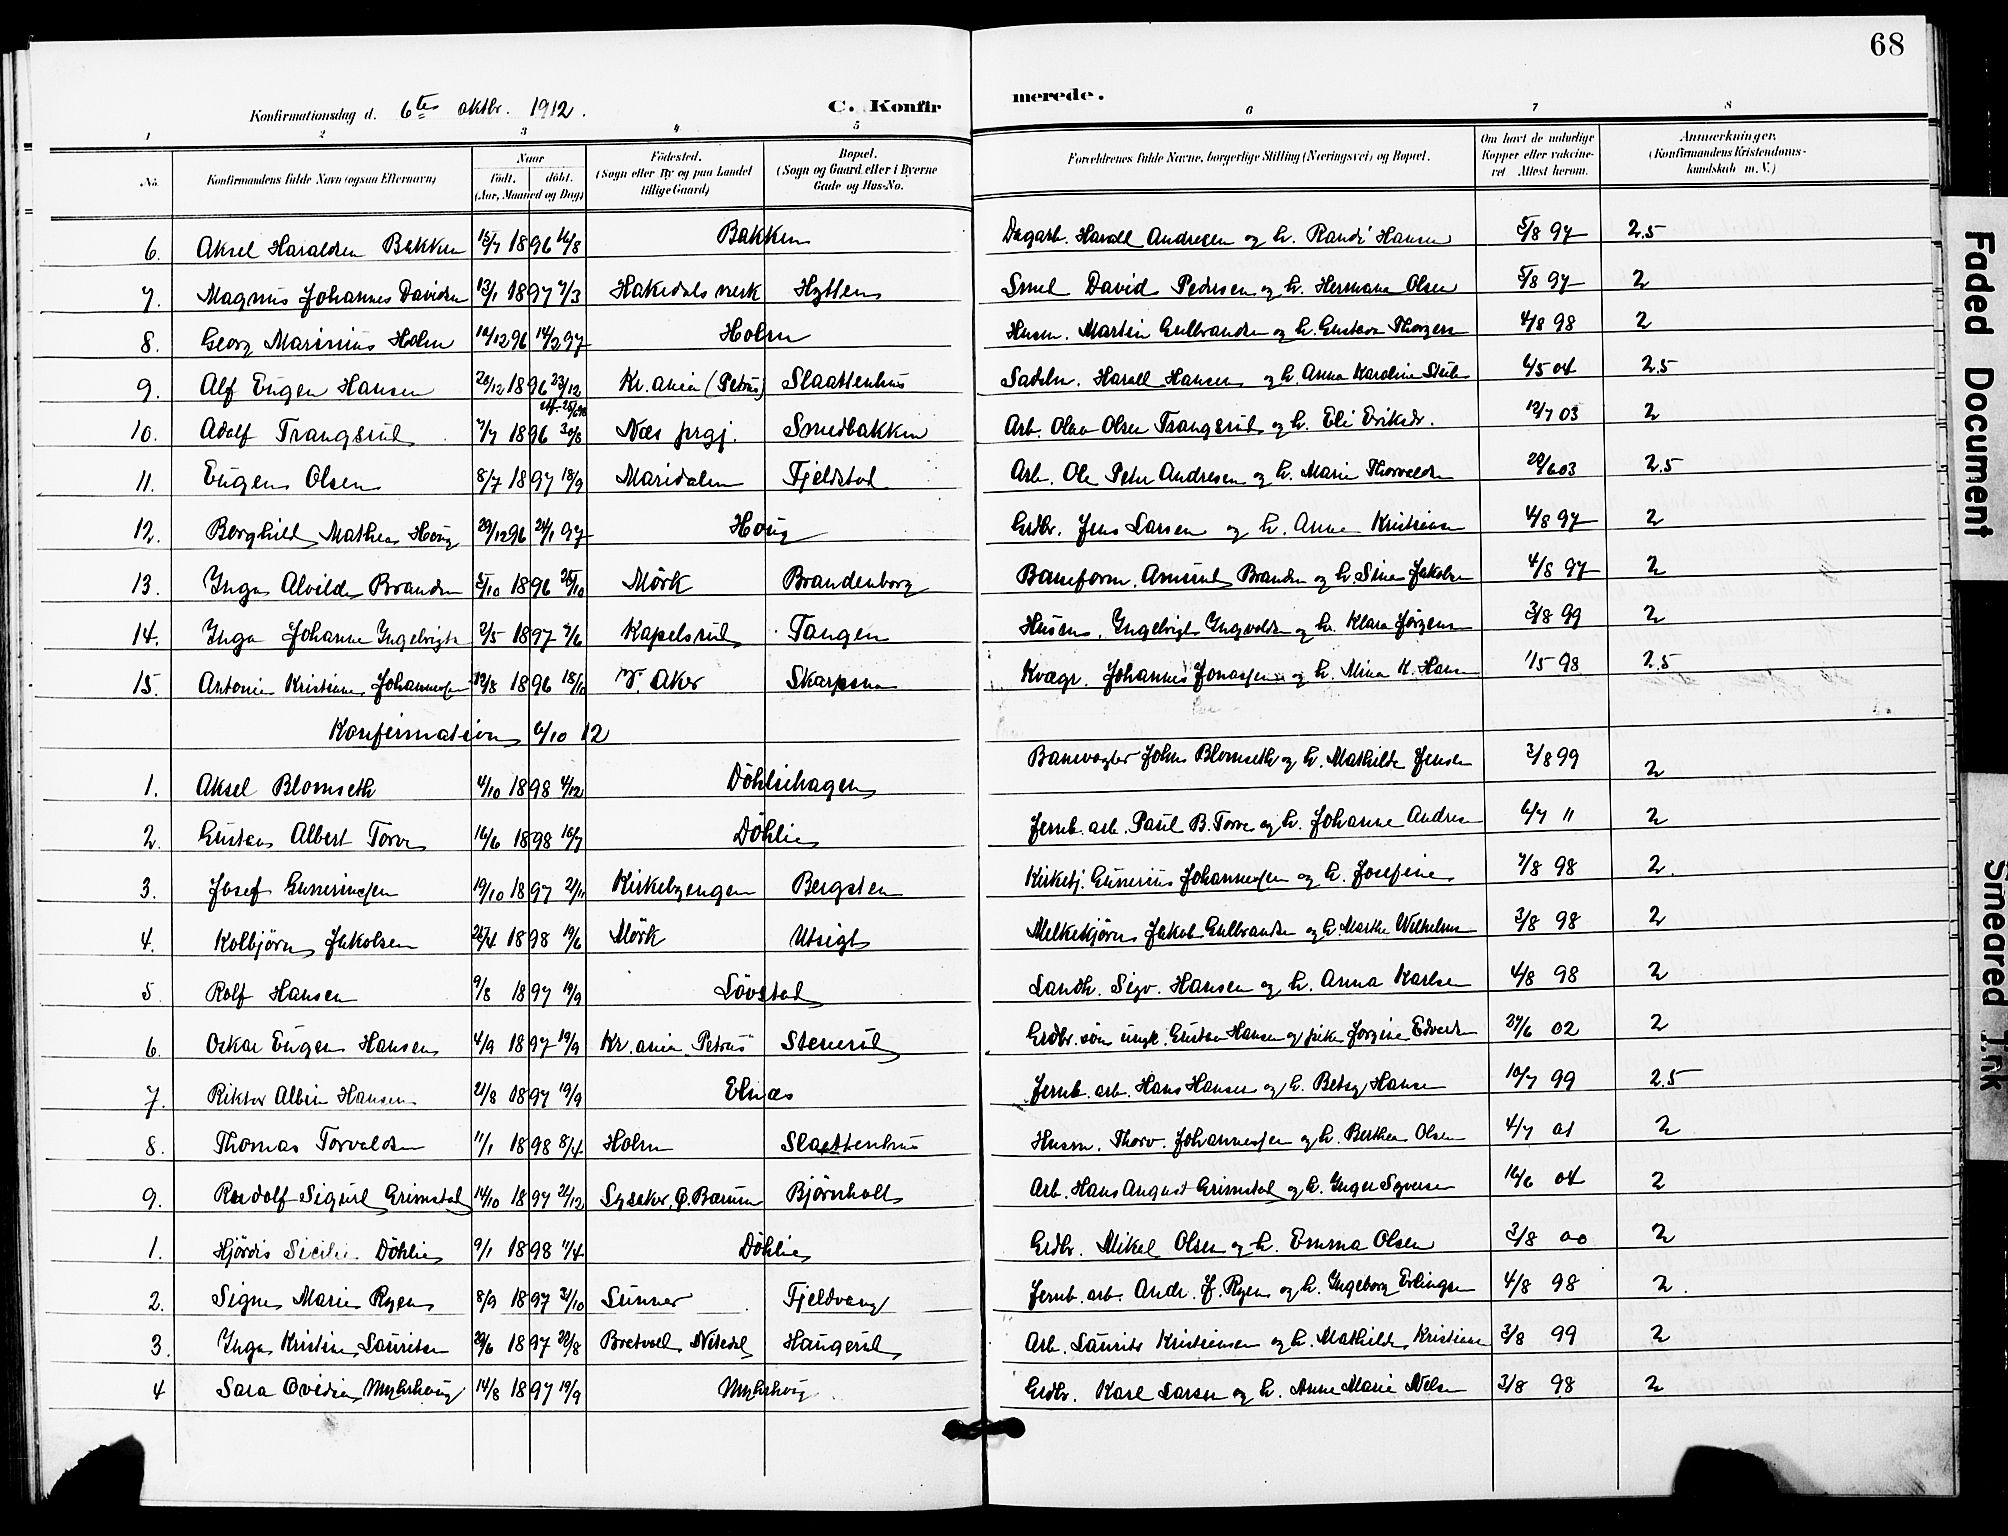 68
Konfirmationsdag d. 6te oktbr. 1912. C. Konfirmerede.
1 2 3 4 5 6 7 8
No. Konfirmandens fulde Navn (ogsaa Efternavn) Naar Født. døbt. (Aar, Maaned og Dag) Fødested. (Sogn eller By og paa Landet tillige Gaard) Bopæl. (Sogn og Gaard eller i Byerne Gade og Hus-No. Forældrenes fulde Navne, borgerlige Stilling (Næringsvei) og Bopæl. Om havt de naturlige Kopper eller vaccineret Attest herom. Anmærkninger. (Konfirmandens Kristendomskundskab m. V.)
6. Aksel Haraldsen Bakken 15/7 1896 16/8 Bakken Dagarb. Harald Andresen og h. Randi Hansen 5/8 97 2.5
7. Magnus Johannes Davidsen 13/1 1897 7/3 Hakedals verk Hytten Smed David Pedersen og h. Hermana Olsen 5/8 97 2
8. Georg Marinius Holm 10/12 96 14/2 97 Holm Husm. Martin Gulbrandsen og h. Gustava Thorgers 4/8 98 2
9. Alf Eugen Hansen 28/12 1896 23/12 Kr.ania (Petrus) Slaattenhus Sadelm. Harald Hansen og h. Anna Karoline 6/5 04 2.5
10. Adolf Trangsrud 7/7 1896 30/8 Næs prgj. Smedbakken Arb. Olaves Olsen Trangsrud og h. Eli Eriksdr. 12/7 03 2
11. Eugen Olsen 8/7 1897 18/9 Maridalen Fjeldstad Arb. Ole Peter Andresen og h. Marie Thorvaldsen 20/6 03 2.5
12. Borghild Mathea Houg 29/12 96 24/1 97 Houg Grdbr. Jens Larsen og h. Anna Kristiansen 4/8 97 2
13. Inga Alvilde Brandsen 5/10 1896 25/10 Mörk Brandenborg Baneform. Amund Brandsen og h. Stina Jakobsen 4/8 97 2
14. Inga Johanne Ingebrigts 2/5 1897 7/6 Kapelsrud Tangen Husm. Ingebrigt Ingvoldsen og h. Klara Jørgens 3/8 99 2
15. Antonie Kristiane Johannessen 12/8 1896 18/10 V. Aker Skarpsno Kvægr. Johannes Jonassen og h. Mina K. Hans 1/5 98 2.5
Konfirmation 6/10 12
1. Aksel Blomseth 4/10 1898 4/12 Döhliehagen Banevogter Johns Blomseth og h. Mathilde Jensen 3/8 99 2
2. Gustav Albert Torve 16/6 1898 10/7 Döhlie Jernb. arb. Paul B. Torve og h. Johanne Andrea 6/7 11 2
3. Josef Gunneriussen 19/10 1897 21/11 Kirkebyengen Bergsten Kirketj. Gunerius Johannessen og h. Josefine 7/8 98 2.
4. Kolbjörn Jakobsen 25/4 1898 19/6 Mörk Utsigt Melkekjörer Jakob Gulbrandsen og h. Marthe Wilhelms 3/8 98 2
5 Rolf Hansen 9/8 1897 19/9 Lövstad Landh. Sigv. Hansen og h. Anna Karlsen 4/8 98 2
6. Oskar Eugen Hansen 4/9 1897 19/9 Kr.ania Petrus Stenerud Grdbr. sön ungk. Gustav Hansen og pike Jorgine Edvards 27/6 02 2
7. Riktor Albin Hansen 2/8 1897 19/9 Elnæs Jernb. arb. Hans Hansen og h. Betsy Hansen 10/7 99 2.5
8. Thomas Torvaldsen 11/1 1898 8/4 Holm Slaattenhus Husm. Thorv. Johannessen og h. Berthea Olsen 4/7 01 2
9. Rudolf Sigurd Grimstad 14/10 1897 21/12 Lysaker, Ø. Bærum Björnholt Arb. Hans August Grimstad og h. Inger Syversen 16/6 04 2
1. Hjördis Sicilie Döhlie 9/1 1898 11/4 Döhlie Grdbr. Mikal Olsen og h. Emma Olsen 3/8 00 2
2. Signe Marie Ryen 8/9 1897 31/10 Sunner Fjeldvang Jernb. arb. Andr. J. Ryen og h. Ingeborg Erlingsen 4/8 98 2.
3. Inga Kristine Lauritsen 29/6 1897 22/8 Bretvedt, Nitedal Haugerud Arb. Laurits Kristiansen og h. Mathilde Kristians 3/8 99 2
4 Sara Ovidia Myhrhoug 14/8 1897 19/9 Myhrhoug Grdbr. Karl Larsen og h. Anne Marie Nilsen 3/8 98 2
Faded Document
Smeared Ink